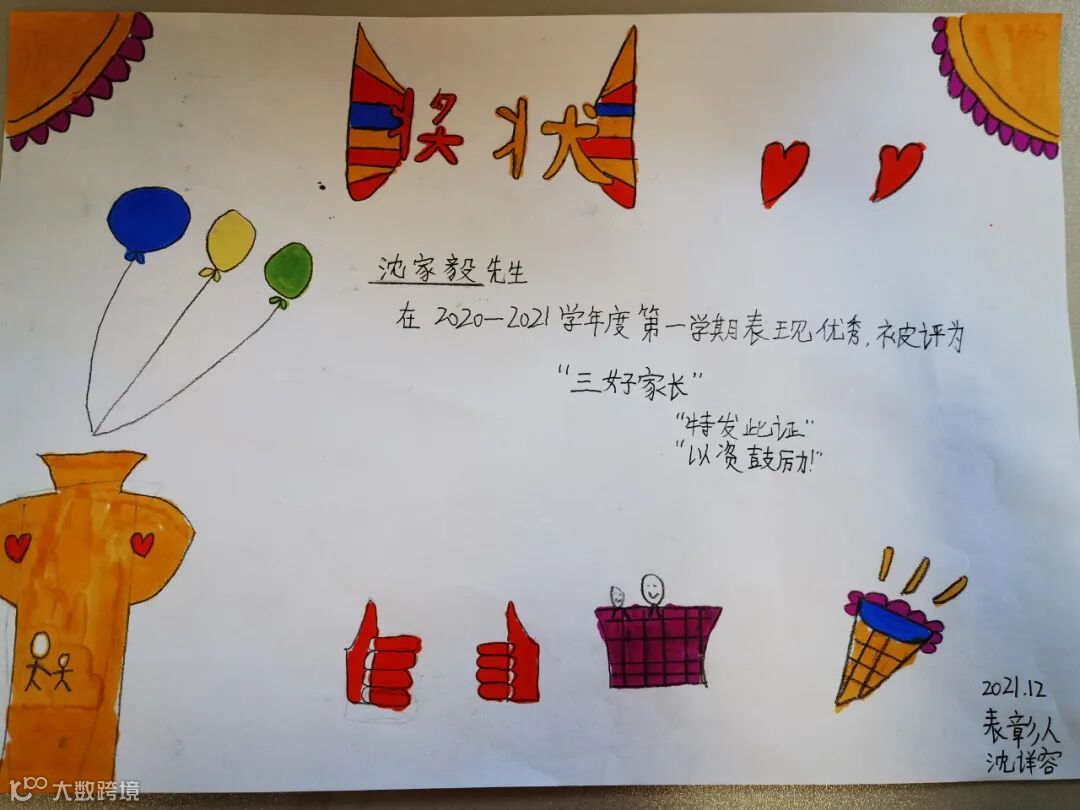 奖状
沈家毅先生
在2020—2021学年度第一学期表现优秀,被评为
“三好家长”
“特发此证”
“以资鼓励!”
2021.12
表彰人
沈详容
大数跨境